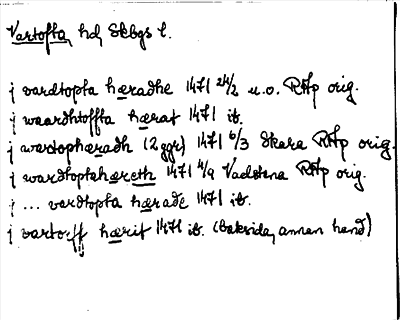 Vartofta hd Skbgs l.
j vardtopta hæradhe 1471 24/2 u.o. RAp orig.
j waardhtoffta hærat 1471 ib.
j wartophæradh (2 ggr) 1471 6/3 Skara RAp orig.
j wardtoptahæreth 1471 4/9 Vadstena RAp orig.
j ... vardtopta hærade 1471 ib.
j vartorff hærit 1471 ib. (baksida, annan hand)